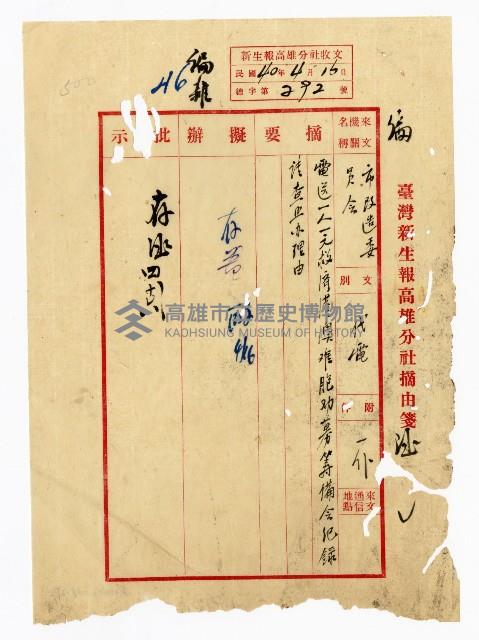 新生報高雄分社收文
民國40年4月16日
總字第292號
編
雜
46
編
臺灣新生報高雄分社摘由箋
來文機關名稱
市改造委員會
文別
代電
附件
一件
來文通信地點
摘要
電送一人一元救濟港澳难胞劝募筹備会纪錄
請查照办理由
擬辦
存
4/16
批示
存
高雄市立歷史博物館
KAOHSIUNG MUSEUM OF HISTORY